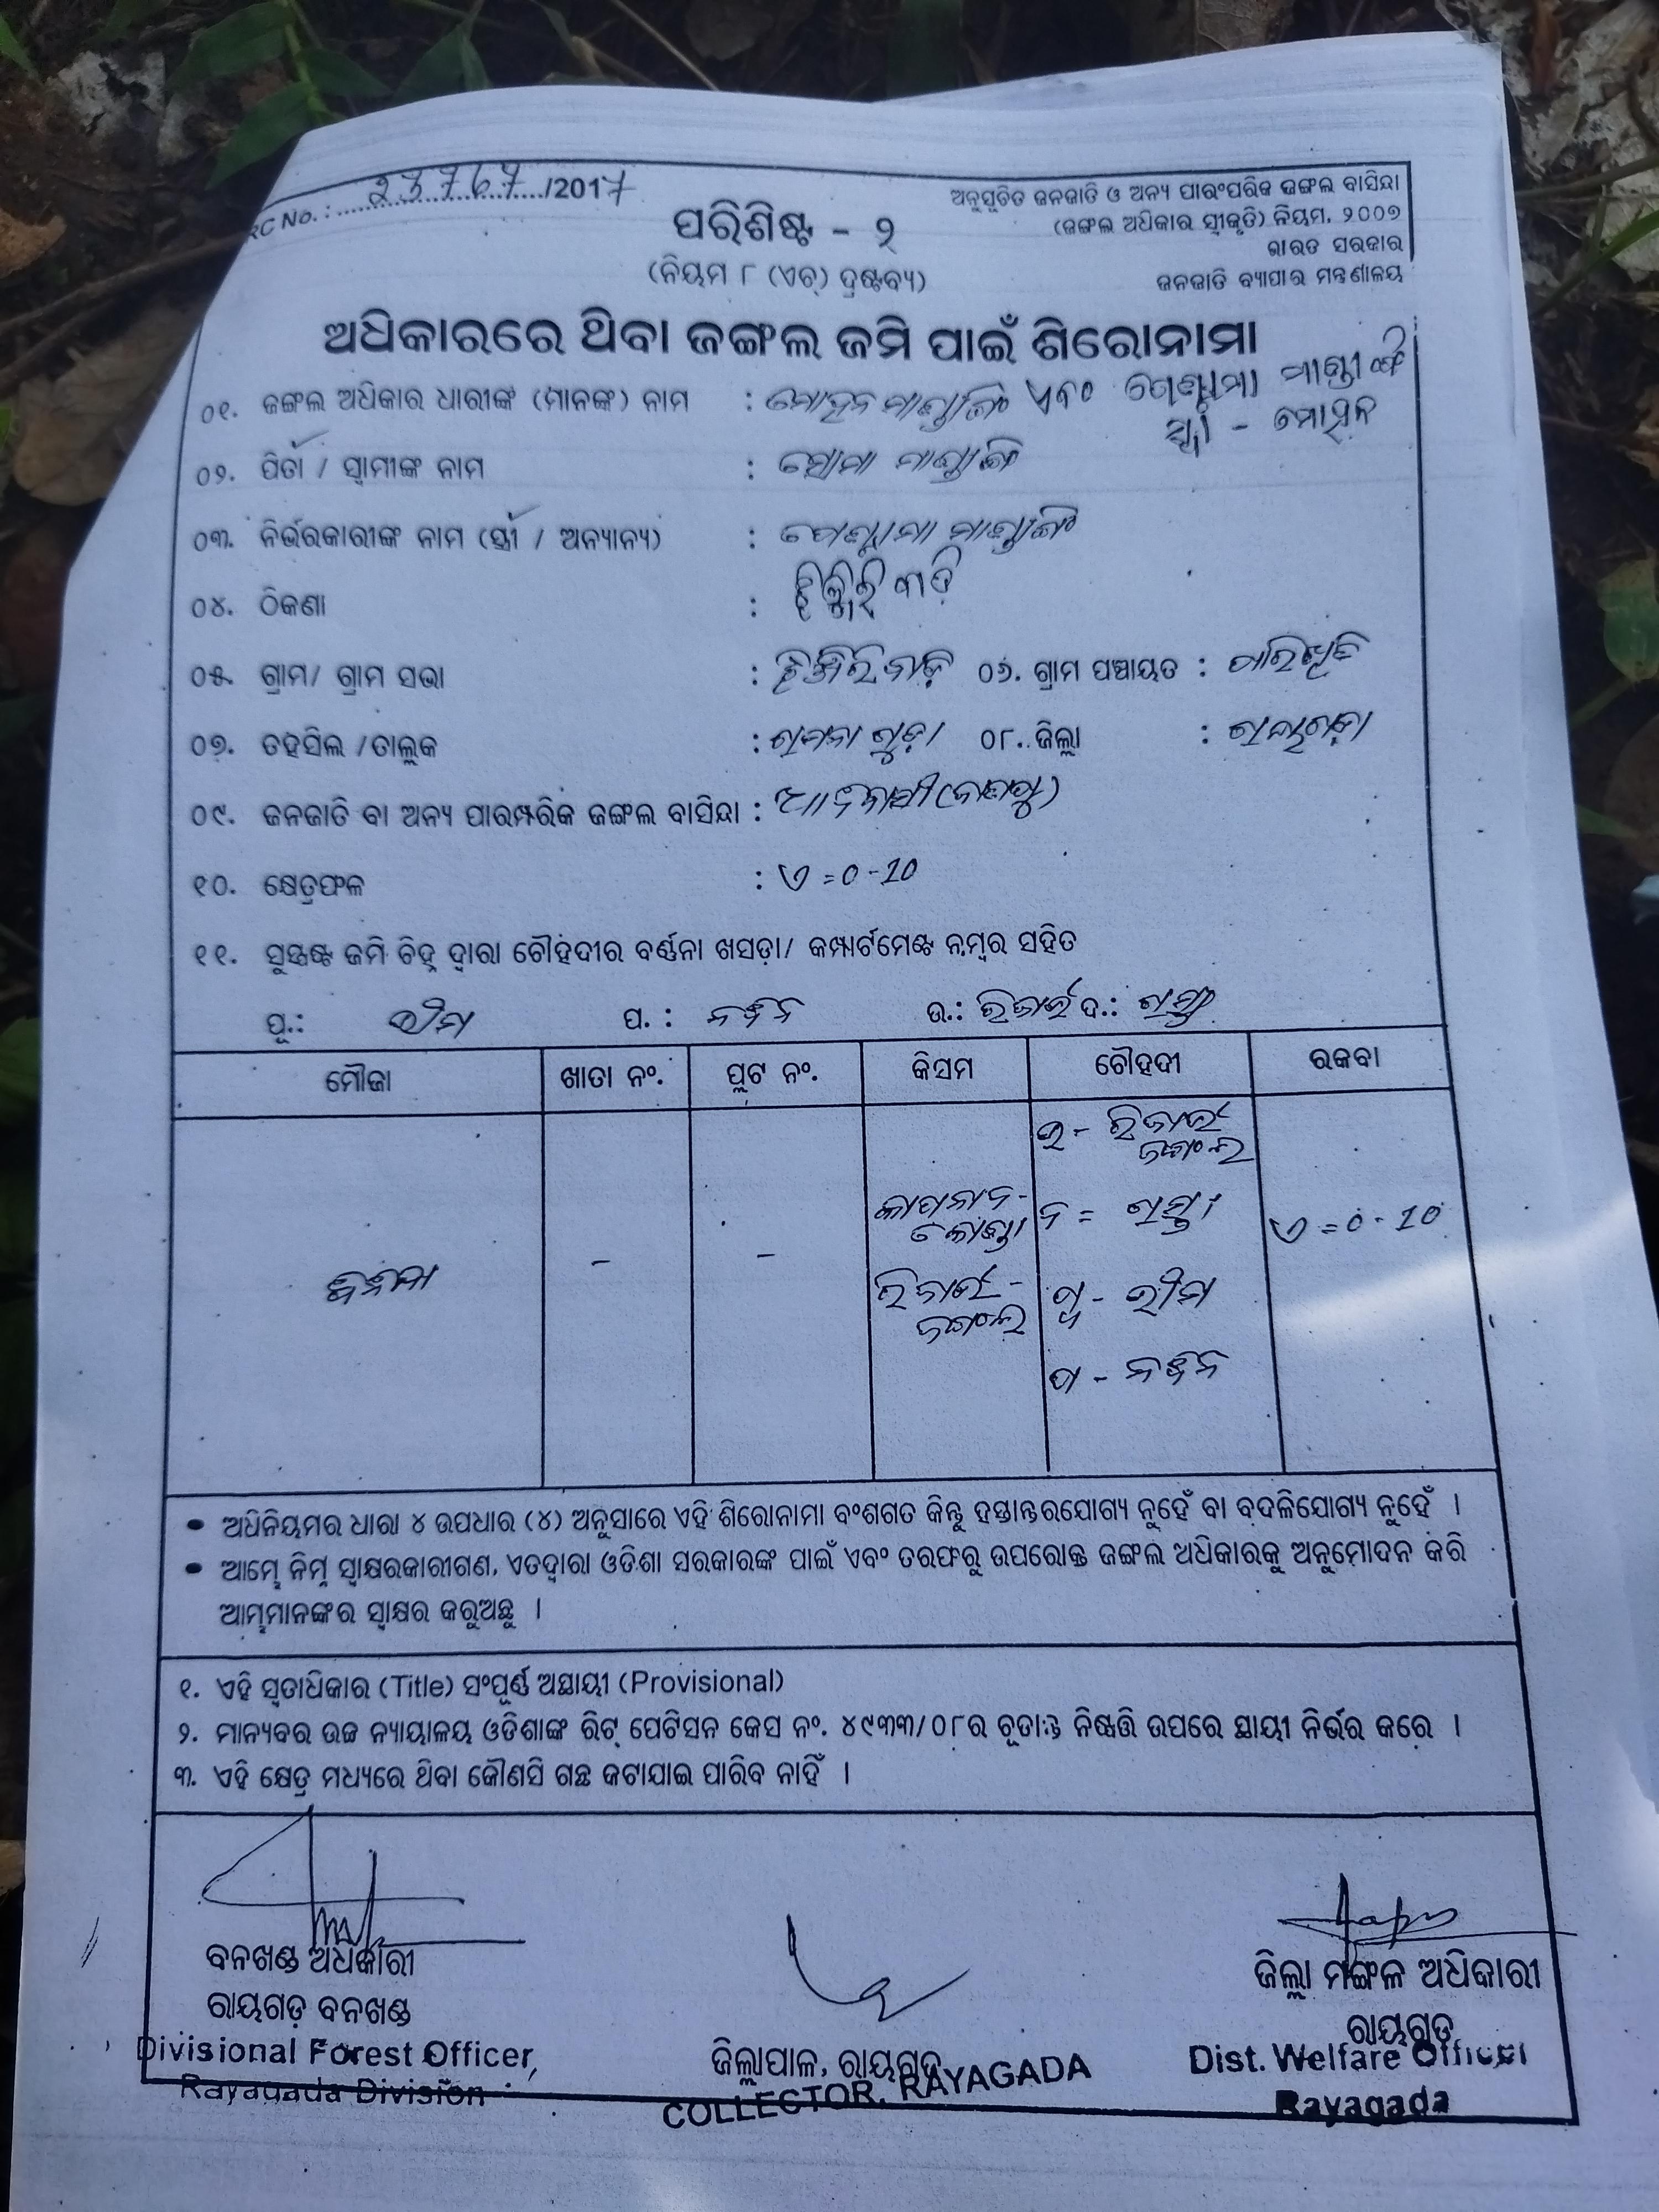 RC No. : 23767/2017
ଅନୁସୂଚିତ ଜନଜାତି ଓ ଅନ୍ୟ ପାରଂପରିକ ଜଙ୍ଗଲ ବାସିନ୍ଦା
(ଜଙ୍ଗଲ ଅଧିକାର ସ୍ୱୀକୃତି) ନିୟମ, ୨୦୦୭
ଭାରତ ସରକାର
ଜନଜାତି ବ୍ୟାପାର ମନ୍ତ୍ରଣାଳୟ
ପରିଶିଷ୍ଟ - ୨
(ନିୟମ ୮ (ଏଚ୍) ଦ୍ରଷ୍ଟବ୍ୟ)
ଅଧିକାରରେ ଥିବା ଜଙ୍ଗଲ ଜମି ପାଇଁ ଶିରୋନାମା
୦୧. ଜଙ୍ଗଲ ଅଧିକାର ଧାରୀଙ୍କ (ମାନଙ୍କ) ନାମ : ମୋହନ ମାଣ୍ଡାଙ୍ଗି ଏବଂ
ସ୍ୱା - ମୋହନ
୦୨. ପିତା / ସ୍ୱାମୀଙ୍କ ନାମ : ସୋମା ମାଣ୍ଡାଙ୍ଗି
୦୩. ନିର୍ଭରକାରୀଙ୍କ ନାମ (ସ୍ତ୍ରୀ / ଅନ୍ୟାନ୍ୟ) : ମାଣ୍ଡାଙ୍ଗି
୦୪. ଠିକଣା :
୦୫. ଗ୍ରାମ/ ଗ୍ରାମ ସଭା : ୦୬. ଗ୍ରାମ ପଞ୍ଚାୟତ :
୦୭. ତହସିଲ /ତାଲୁକ : ରାମନାଗୁଡ଼ା ୦୮. ଜିଲ୍ଲା : ରାୟଗଡ଼ା
୦୯. ଜନଜାତି ବା ଅନ୍ୟ ପାରମ୍ପରିକ ଜଙ୍ଗଲ ବାସିନ୍ଦା : ଆଦିବାସୀ
୧୦. କ୍ଷେତ୍ରଫଳ : ଏ = 0 - 10
୧୧. ସୁସ୍ପଷ୍ଟ ଜମି ଚିହ୍ନ ଦ୍ୱାରା ଚୌହଦୀର ବର୍ଣ୍ଣନା ଖସଡ଼ା/ କମ୍ପାର୍ଟମେଣ୍ଟ ନମ୍ବର ସହିତ
ପୂ.: ଭୀମ ପ. : ନବୀନ ଉ.: ରିଜର୍ଭ ଦ.: ରାସ୍ତା
ମୌଜା ଖାତା ନଂ. ପ୍ଲଟ ନଂ. କିସମ ଚୌହଦୀ ରକବା
ଉ - ରିଜର୍ଭ
ଜଙ୍ଗଲ
ଦ = ରାସ୍ତା
- - ଏ = 0 - 10
ରିଜର୍ଭ -
ଜଙ୍ଗଲ
ପୂ - ଭୀମ
ପ - ନବୀନ
• ଅଧିନିୟମର ଧାରା ୪ ଉପଧାରା (୪) ଅନୁସାରେ ଏହି ଶିରୋନାମା ବଂଶଗତ କିନ୍ତୁ ହସ୍ତାନ୍ତରଯୋଗ୍ୟ ନୁହେଁ ବା ବଦଳିଯୋଗ୍ୟ ନୁହେଁ ।
• ଆମ୍ଭେ ନିମ୍ନ ସ୍ୱାକ୍ଷରକାରୀଗଣ, ଏତଦ୍ୱାରା ଓଡିଶା ସରକାରଙ୍କ ପାଇଁ ଏବଂ ତରଫରୁ ଉପରୋକ୍ତ ଜଙ୍ଗଲ ଅଧିକାରକୁ ଅନୁମୋଦନ କରି
ଆମ୍ଭମାନଙ୍କର ସ୍ୱାକ୍ଷର କରୁଅଛୁ ।
୧. ଏହି ସ୍ୱତାଧିକାର (Title) ସଂପୂର୍ଣ୍ଣ ଅସ୍ଥାୟୀ (Provisional)
୨. ମାନ୍ୟବର ଉଚ୍ଚ ନ୍ୟାୟାଳୟ ଓଡିଶାଙ୍କ ରିଟ୍ ପେଟିସନ କେସ ନଂ. ୪୯୩୩/୦୮ର ଚୂଡାନ୍ତ ନିଷ୍ପତ୍ତି ଉପରେ ସ୍ଥାୟୀ ନିର୍ଭର କରେ ।
୩. ଏହି କ୍ଷେତ୍ର ମଧ୍ୟରେ ଥିବା କୌଣସି ଗଛ କଟାଯାଇ ପାରିବ ନାହିଁ ।
ବନଖଣ୍ଡ ଅଧିକାରୀ
ରାୟଗଡ଼ ବନଖଣ୍ଡ
Divisional Forest Officer,
Rayagada Division
ଜିଲ୍ଲାପାଳ, ରାୟଗଡ଼
COLLECTOR, RAYAGADA
ଜିଲ୍ଲା ମଙ୍ଗଳ ଅଧିକାରୀ
ରାୟଗଡ଼
Dist. Welfare Officer
Rayagada